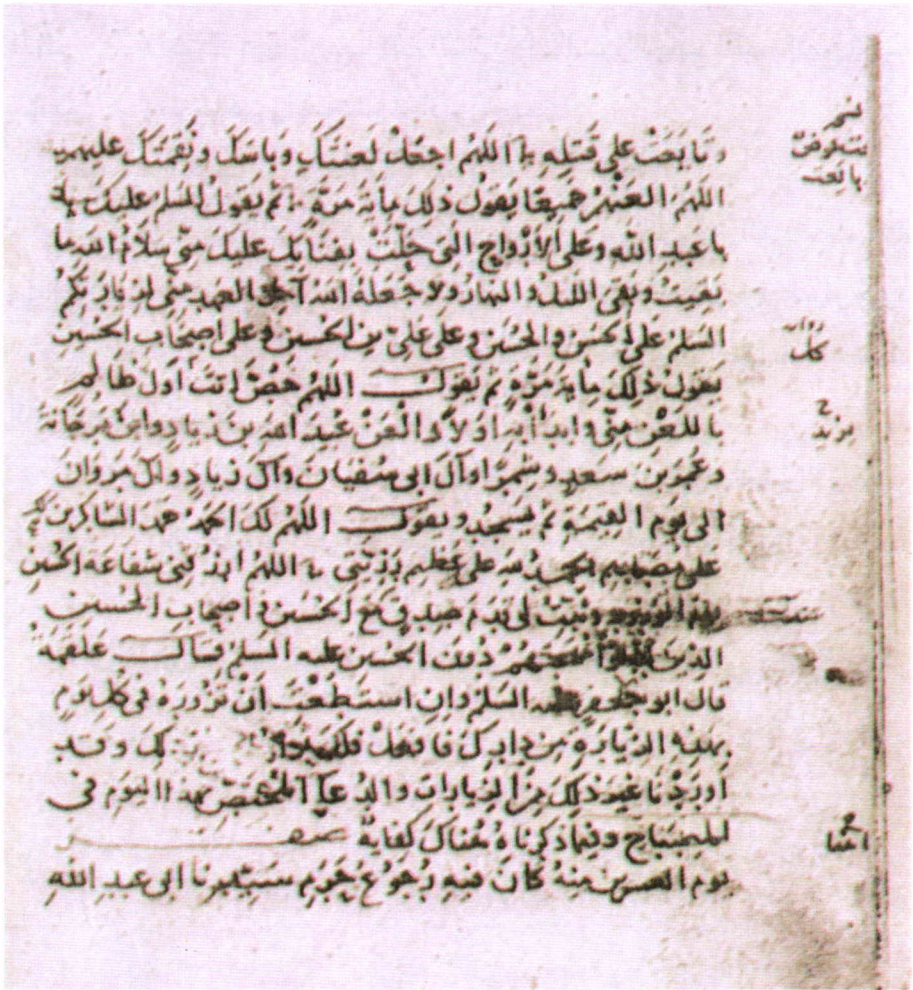 وتابعت على قتله اللهم اجعل لعنتك وباسك ونقمتك عليهم
اللهم العنهم جميعا يقول ذلك ماية مرة ثم يقول السلم عليك يا
ابا عبد الله وعلى الأرواح التي حلت بفنائك عليك مني سلام الله ما
بقيت وبقى الليل والنهار ولا جعله الله آخر العهد مني لزيارتكم
السلم على الحسن والحسين وعلى علي بن الحسين وعلى اصحاب الحسين
يقول ذلك ماية مرة ثم يقول اللهم خص انت اول ظالم
باللعن مني وابدأ به اولا والعن عبيد الله بن زياد وابن مرجانة
وعمر بن سعد وشمرا وآل ابى سفيان وآل زياد وآل مروان
الى يوم القيمة ثم يسجد ويقول اللهم لك الحمد حمد الشاكرين لك
على مصابهم الحمد لله على عظيم رزيتى اللهم ارزقنى شفاعة الحسين
يوم الورود وثبت لى قدم صدق مع الحسين واصحاب الحسين
الذين بذلوا مهجهم دون الحسين عليه السلم قال علقمة
قال ابو جعفر عليه السلم وان استطعت أن تزوره فى كل يوم
بهذه الزيارة من دارك فافعل فلك ذلك وقد
اوردنا غير ذلك من الزيارات والدعاء المختص بهذا اليوم فى
المصباح وفيما ذكرناه هناك كفاية صفر
يوم العشرين منه كان فيه رجوع حرم سيدنا ابى عبد الله
وبايعت
رواية
كل
مزيد